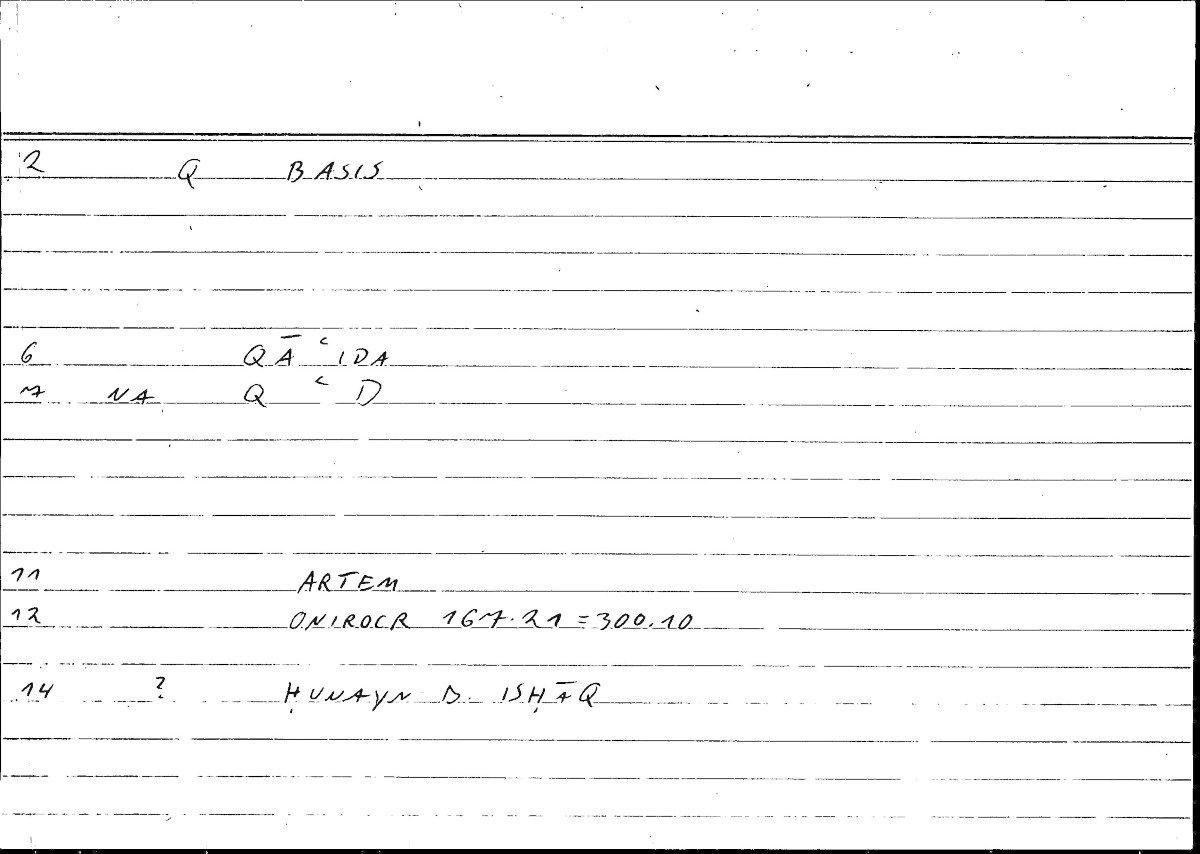 2 Q BASIS
6 QĀʿIDA
7 NA QʿD
11 ARTEM
12 ONIROCR 167.21=300.10
14 ? ḤUNAYN B. ISḤĀQ